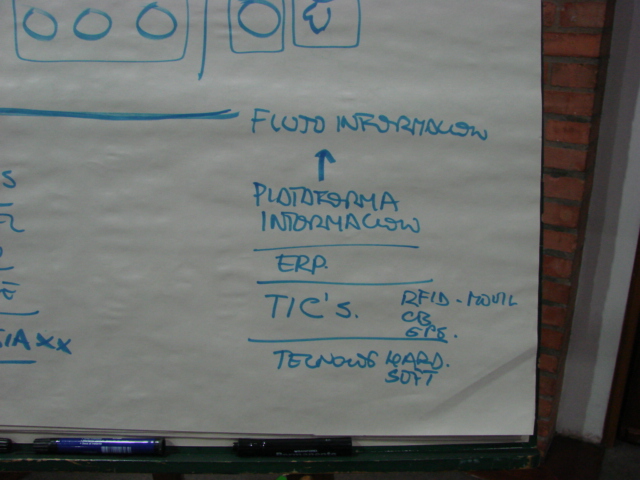 FLUJO INFORMACION
PLATAFORMA
INFORMACION
ERP.
TIC'S. RFID - MOVIL
CB
GPS.
HARD.
SOFT
S
IA XX